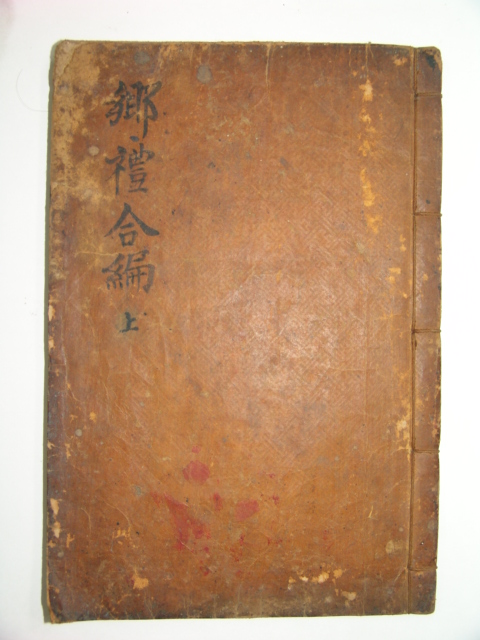 鄉禮合編
上